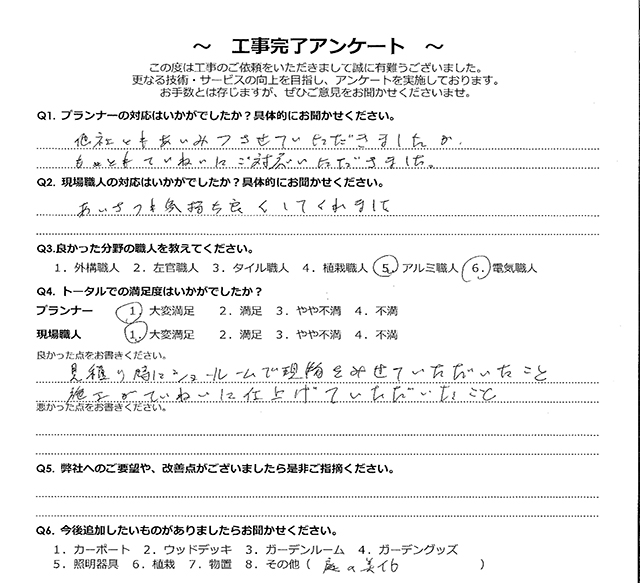 ～ 工事完了アンケート ～
この度は工事のご依頼をいただきまして誠に有難うございました。
更なる技術・サービスの向上を目指し、アンケートを実施しております。
お手数とは存じますが、ぜひご意見をお聞かせくださいませ。
Q1. プランナーの対応はいかがでしたか？具体的にお聞かせください。
他社ともあいみつさせていただきましたが、
もっともていねいにご対応いただきました。
Q2. 現場職人の対応はいかがでしたか？具体的にお聞かせください。
あいさつも気持ち良くしてくれました
Q3.良かった分野の職人を教えてください。
1．外構職人 2．左官職人 3．タイル職人 4．植栽職人 5．アルミ職人 6．電気職人
Q4. トータルでの満足度はいかがでしたか？
プランナー 1．大変満足 2．満足 3．やや不満 4．不満
現場職人 1．大変満足 2．満足 3．やや不満 4．不満
良かった点をお書きください。
見積り時にショールームで現物をみせていただいたこと
施工がていねいに仕上げていただいたこと
悪かった点をお書きください。
Q5. 弊社へのご要望や、改善点がございましたら是非ご指摘ください。
Q6. 今後追加したいものがありましたらお聞かせください。
1．カーポート 2．ウッドデッキ 3．ガーデンルーム 4．ガーデングッズ
5．照明器具 6．植栽 7．物置 8．その他（ 庭の美化 ）